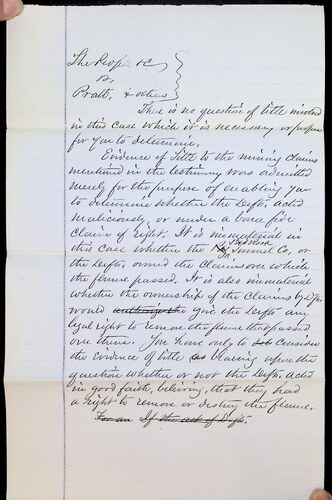 The People &c
vs.
Pratt, & others
There is no question of title involved
in this case which it is necessary or proper
for you to determine.
Evidence of Title to the mining claims
mentioned in the testimony was admitted
merely for the purpose of enabling you
to determine whether the Defts. acted
maliciously, or under a bona fide
claim of right. It is immaterial in
this case whether the Bed Rock Tunnel Co, or
the Defts. owned the claims over which
the flume passed. It is also immaterial
whether the ownership of the claims by Defts
would authorize the give the Defts any
legal right to remove the flume that passed
over them. You have only to consider
the Evidence of title as bearing upon the
question whether or not the Defts. acted
in good faith, believing, that they had
a right to remove or destroy the flume.
For an If the act of Defts.